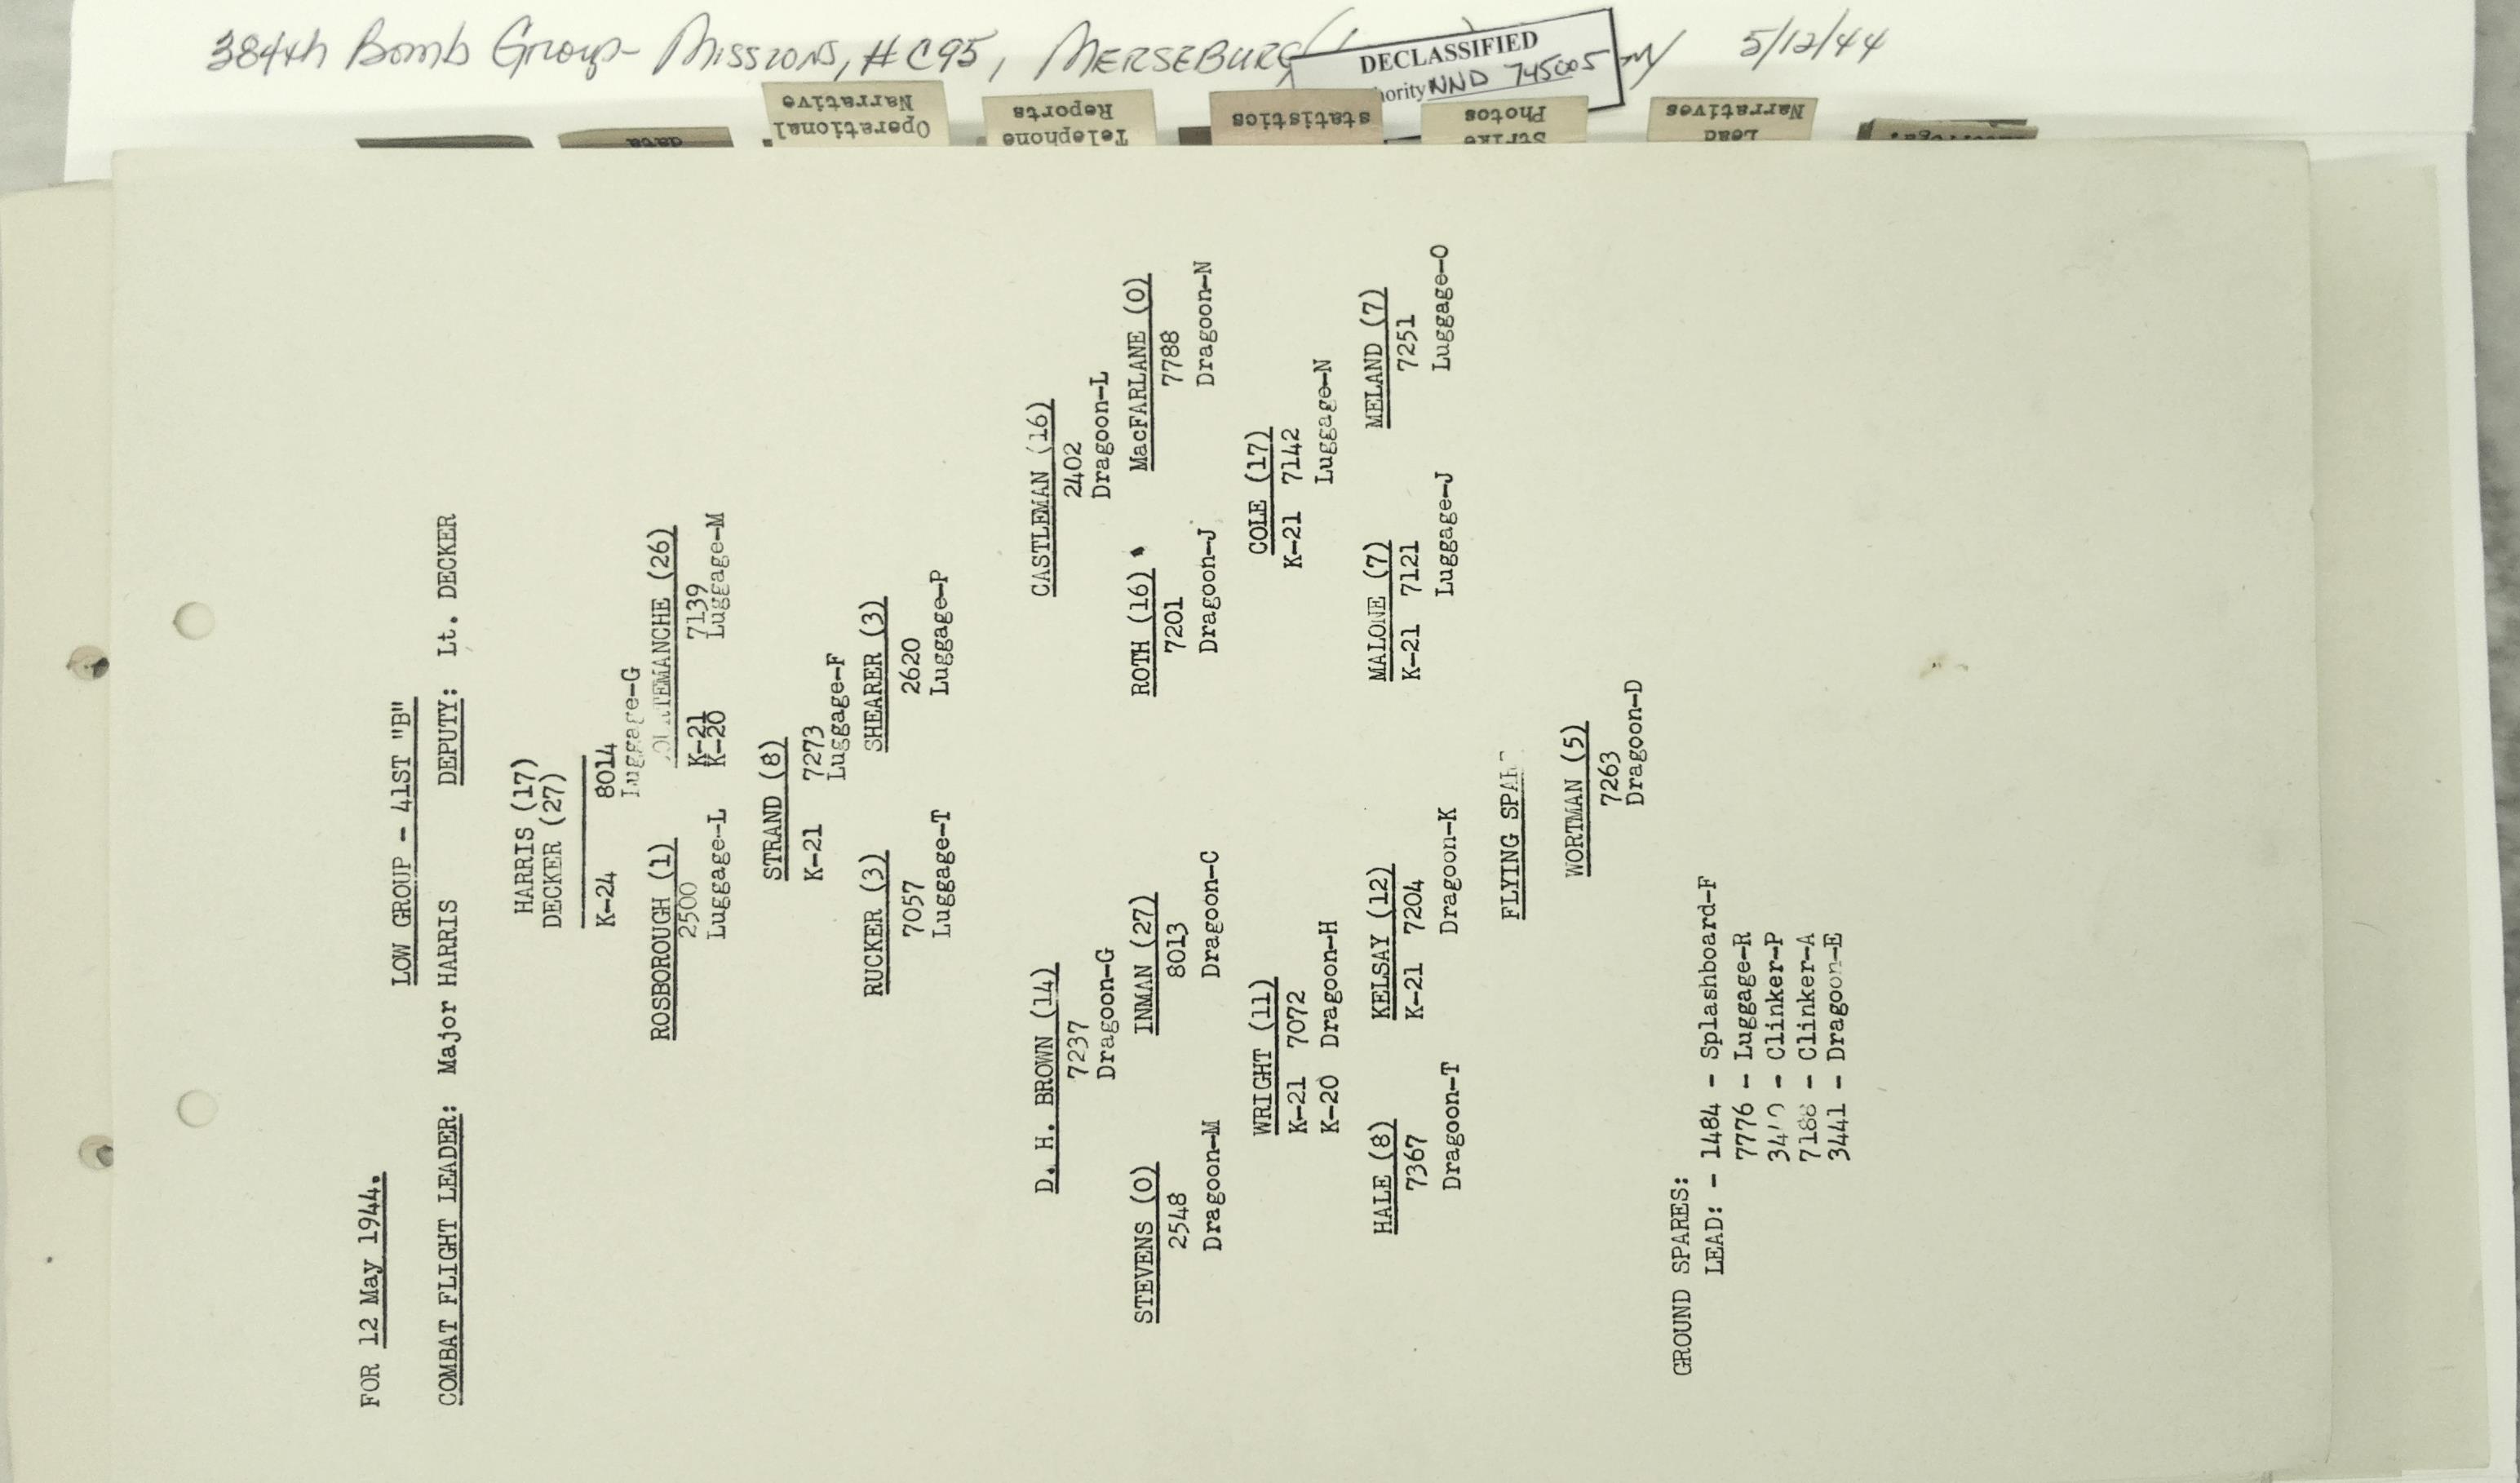 384th Bomb Group- Missions, #C95, MERSEBURG 5/12/44
DECLASSIFIED
NND 745005
data
Operational
Narrative
Telephone
Reports
statistics
Strike
Photos
Lead
Narratives
FOR 12 May 1944.
LOW GROUP - 41ST "B"
COMBAT FLIGHT LEADER: Major HARRIS DEPUTY: Lt. DECKER
HARRIS (17)
DECKER (27)
K-24 8014
Luggage-G
ROSBOROUGH (1) (26)
2500 K-21 7139
Luggage-L K-20 Luggage-M
STRAND (8)
K-21 7273
Luggage-F
RUCKER (3) SHEARER (3)
7057 2620
Luggage-T Luggage-P
D. H. BROWN (14) CASTLEMAN (16)
7237 2402
Dragoon-G Dragoon-L
STEVENS (0) INMAN (27) ROTH (16) MacFARLANE (0)
2548 8013 7201 7788
Dragoon-M Dragoon-C Dragoon-J Dragoon-N
WRIGHT (11) COLE (17)
K-21 7072 K-21 7142
K-20 Dragoon-H Luggage-N
HALE (8) KELSAY (12) MALONE (7) MELAND (7)
7367 K-21 7204 K-21 7121 7251
Dragoon-T Dragoon-K Luggage-J Luggage-O
FLYING
WORTMAN (5)
7263
Dragoon-D
GROUND SPARES:
LEAD: - 1484 - Splashboard-F
7776 - Luggage-R
- Clinker-P
7188 - Clinker-A
3441 - Dragoon-E